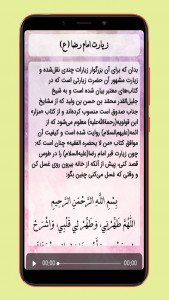 زیارت امام رضا (ع)
بدان که برای آن بزرگوار زیارات چندی نقل‌شده و
زیارت مشهور آن حضرت زیارتی است که در
کتاب‌های معتبر بیان شده است و به شیخ
جلیل‌القدر محمّد بن حسن بن ولید که از مشایخ
جناب صدوق است منسوب کرده‌اند و از «مزار»
ابن قولویه(رحمةالله‌علیه) معلوم می‌شود که از
ائمه(علیهم‌السلام) روایت شده است و کیفیت آن
موافق کتاب «من لا یحضره الفقیه» چنان است که:
چون زیارت قبر امام رضا(علیه‌السلام) را در طوس
قصد کردی، پیش از آنکه از خانه بیرون روی غسل کن
و وقتی که غسل می‌کنی چنین بگو:
بِسْمِ اللَّهِ الرَّحْمٰنِ الرَّحِيمِ
اللَّهُمَّ طَهِّرْنِي، وَطَهِّرْ لِي قَلْبِي، وَاشْرَحْ
00:00
00:00